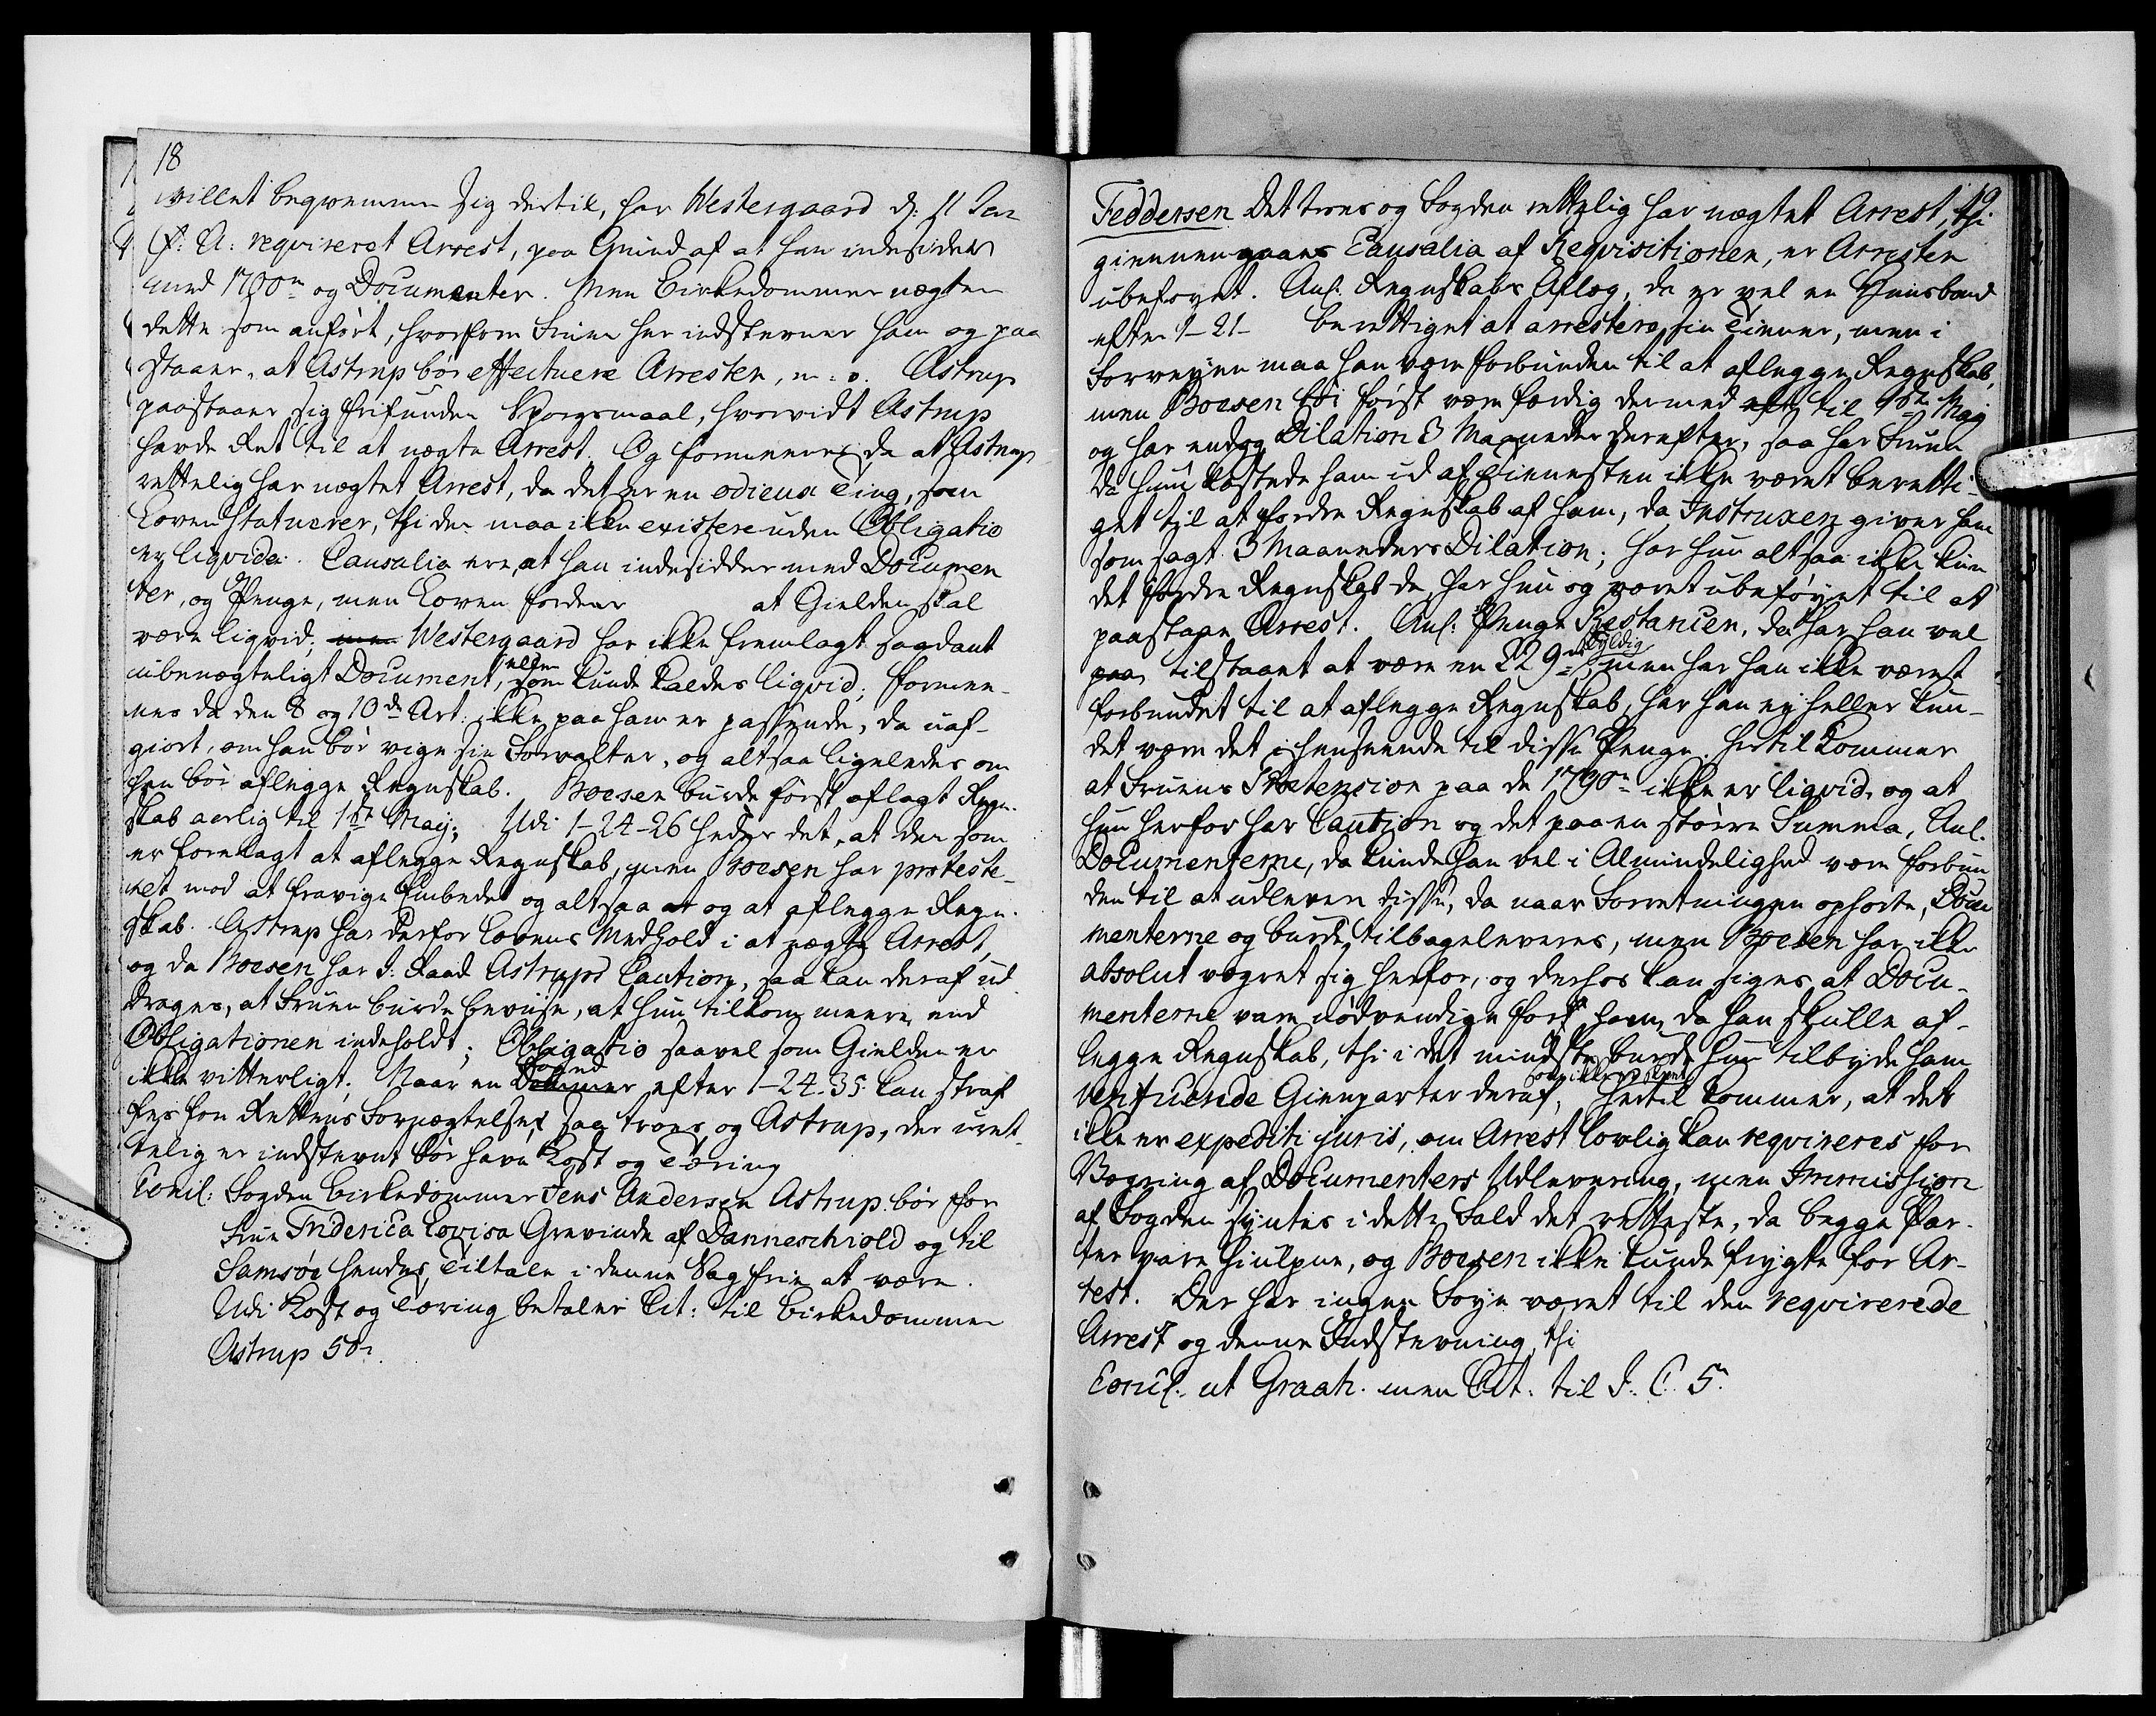 18
villet beqvemme sig dertil, har Westergaard d: 11 Jan
f: A: reqvireret Arrest, paa Grund af at han indesidder
med 1790rd og Documenter. Men Birkedommer nægter
dette som anført, hvorfor Fruen her indstevner ham og paa
staaer, at Astrup bør effectuere Arresten, m. v. Astrup
paastaaer sig frifunden Spørgsmaal, hvorvidt Astrup
havde Ret til at nægte Arrest. Og formeenes da at Astrup
rettelig har nægtet Arrest, da det er en odieux Ting, som
Loven statuerer, thi der maa ikke existere uden Obligatio
er liqvida. Causalia ere, at han indesidder med Documen
ter, og Penge, men Loven fordrer at Gielden skal
være liqvid; men Westergaard har ikke fremlagt saadant
ubenægteligt Document, eller som kunde kaldes liqvid; formee-
nes da den 8 og 10de Art: ikke paa ham er passende, da uaf-
giort, om han bør vige sin Forvalter, og altsaa ligeledes om
han bør aflegge Regnskab. Boesen burde først aflagt Regn-
skab aarlig til 1ste Maij; Udi 1-24-26 heder det, at den som
er forelagt at aflegge Regnskab, men Boesen har proteste-
ret mod at fravige Embedet og altsaa at og at aflegge Regn-
skab. Astrup har derfor Lovens Medhold i at nægte Arrest,
og da Boesen har J: Raad Astrups Caution, saa kan deraf ud
drages, at Fruen burde beviise, at hun tilkom meere end
Obligationen indeholdt; Obligatio saavel som Gielden er
ikke vitterligt. Naar en Foged Dommer efter 1-24-35 kan straf
fes for Rettens Fornægtelse, saa troes og Astrup, der uret-
telig er indstevnt bør have Kost og Tæring
Concl: Fogden Birkedommer Jens Andersen Astrup bør for
Frue Friderica Lovisa Grevinde af Danneschiold og til
Samsøe hendes Tiltale i denne Sag frie at være.
Udi Kost og Tæring betaler Cit: til Birkedommer
Astrup 50r.
19
Feddersen Det troes og Fogden rettelig har nægtet Arrest, thi
giennemgaaes Causalia af Reqvisitionen, er Arresten
ubeføyet. Anl: Regnskabs Aflæg, da er vel en Huusbond
efter 1-21- berettiget at arrestere sin Tiener, men i
Forveyen maa han være forbunden til at aflegge Regnskab,
men Boesen thi først være færdig dermed eft til 1ste Maij
og har endog Dilation 3 Maaneder derefter, saa har Fruen
da hun kastede ham ud af Tienesten ikke været beretti-
get til at fordre Regnskab af ham, da Instruxen giver ham
som sagt 3 Maaneders Dilation; har hun altsaa ikke kun
det fordre Regnskab da har hun og været ubeføyet til at
paastaae Arrest. Anl: Penge Restancen, da har han vel
paa tilstaaet at være en 229rd skyldig men har han ikke været
forbundet til at aflegge Regnskab, har han ey heller kun-
det være det i henseende til disse Penge. Hertil kommer
at Fruens Prætension paa de 1790rd ikke er liqvid, og at
hun herfor har Caution og det paa en større Summa, Anl.
Documenterne, da kunde han vel i Almindelighed være forbun
den til at udlevere disse, da naar Forretningen ophørte, Docu
menterne og burde tilbageleveres, men Boesen har ikke
absolut vægret sig herfor, og derhos kan siges, at Docu-
menterne vare nødvendige for ham, da han skulle af-
legge Regnskab, thi i det mindste burde hun tilbyde ham
verificerede Gienparter deraf, som ikke er skeet Hertil kommer, at det
ikke er expediti juris, om Arrest lovlig kan reqvireres for
Vægring af Documenters Udlevering, men Immission
af Fogden syntes i dette Fald det retteste, da begge Par-
ter vare hiulpne, og Boesen ikke kunde frygte for Ar-
rest. Der har ingen Føye været til den reqvirerede
Arrest og denne Indstevning, thi
Concl: ut Graah. men Cit: til J: C. 5r.